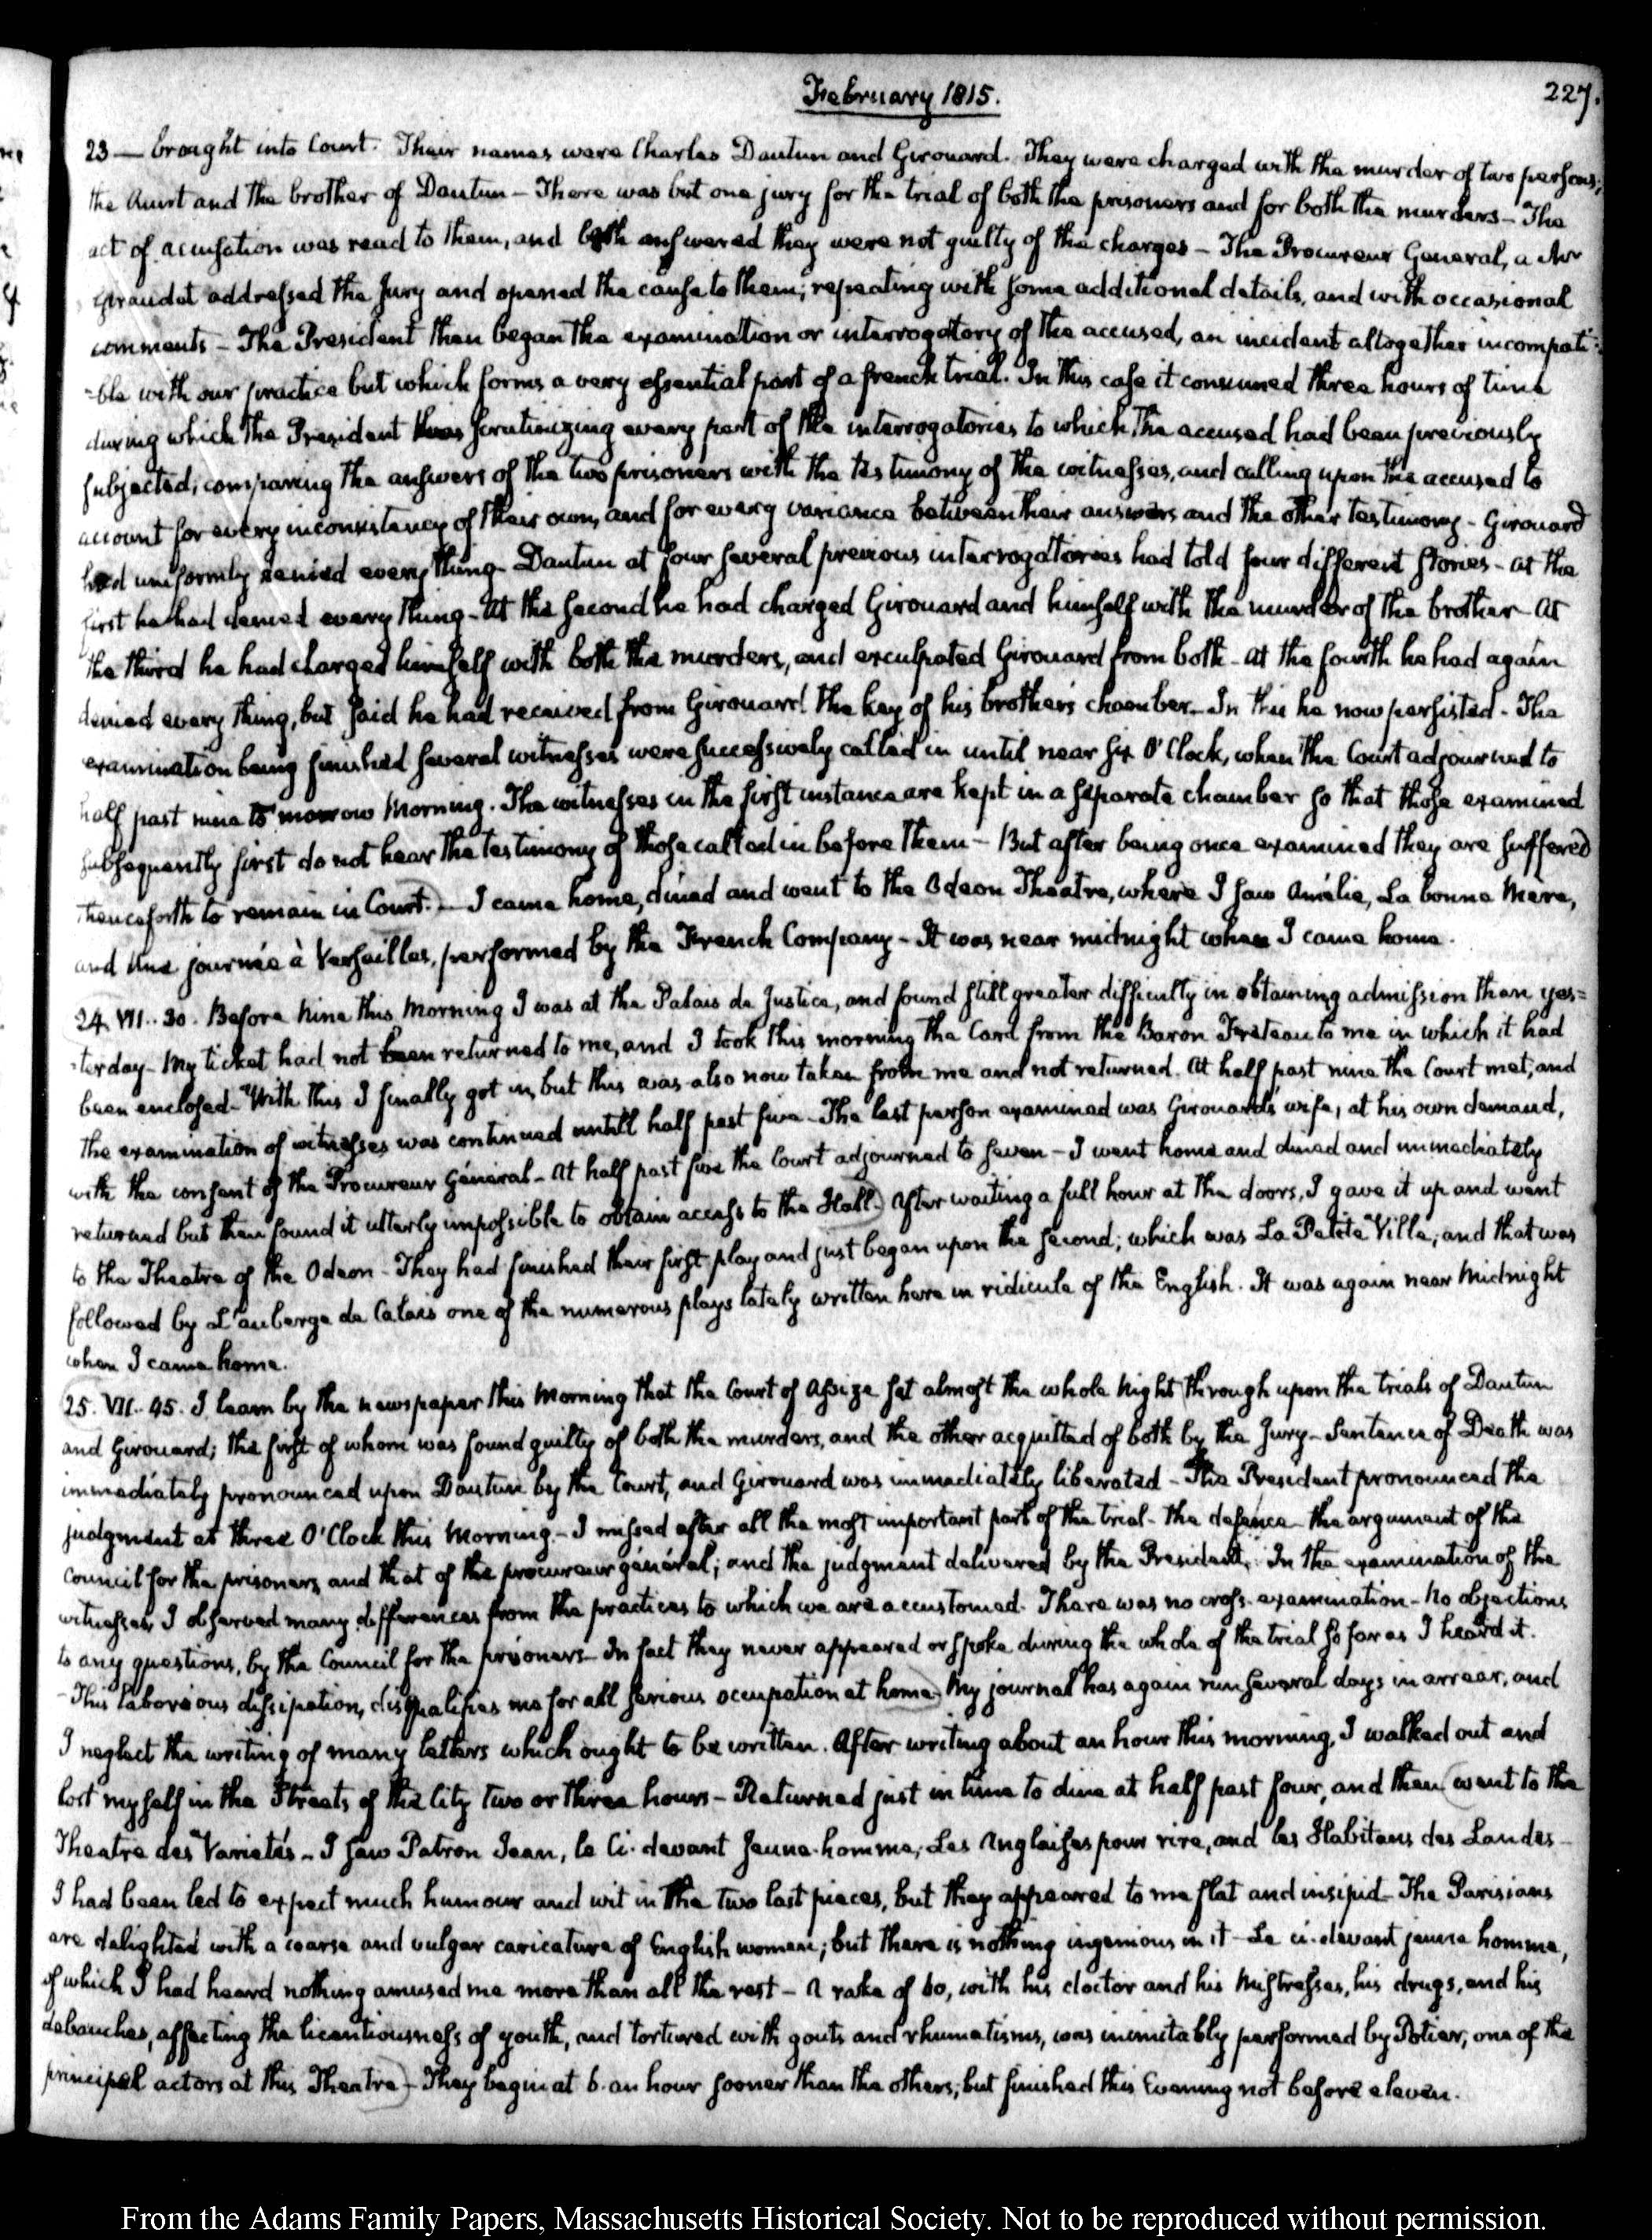 February 1815.
227.
23 — brought into Court. Their names were Charles Dautun and Girouard. They were charged with the murder of two persons;
the Aunt and the brother of Dautun – There was but one jury for the trial of both the prisoners and for both the murders – The
act of accusation was read to them, and both answered they were not guilty of the charges – The Procureur General, a Mr
Giraudet addressed the Jury and opened the cause to them; repeating with some additional details, and with occasional
comments – The President then began the examination or interrogatory of the accused, an incident altogether incompati-
-ble with our practice but which forms a very essential part of a french trial. In this case it consumed three hours of time
during which the President was scrutinizing every part of the interrogatories to which the accused had been previously
subjected; comparing the answers of the two prisoners with the testimony of the witnesses, and calling upon the accused to
account for every inconsistency of their own, and for every variance between their answers and the other testimony – Girouard
had uniformly denied every thing – Dautun at four several previous interrogatories had told four different stories – at the
first he had denied every thing – At the second he had charged Girouard and himself with the murder of the brother – At
the third he had charged himself with both the murders, and exculpated Girouard from both – at the fourth he had again
denied every thing, but said he had received from Girouard the key of his brother's chamber – In this he now persisted – The
examination being finished several witnesses were successively called in until near six O'Clock, when the Court adjourned to
half past nine to morrow Morning. The witnesses in the first instance are kept in a separate chamber so that those examined
subsequently first do not hear the testimony of those called in before them – But after being once examined they are suffered
thenceforth to remain in Court. – I came home, dined and went to the Odeon Theatre, where I saw Amélie, La bonne Mère,
and Une journée à Versailles, performed by the French Company – It was near midnight when I came home.
24. VII.. 30. Before Nine this Morning I was at the Palais de Justice, and found still greater difficulty in obtaining admission than yes=
-terday – My ticket had not been returned to me, and I took this morning the Card from the Baron Freteau to me in which it had
been enclosed – With this I finally got in, but this was also now taken from me and not returned. At half past nine the Court met, and
the examination of witnesses was continued untill half past five – The last person examined was Girouard's wife, at his own demand,
with the consent of the Procureur Général – At half past five the Court adjourned to seven – I went home and dined and immediately
returned but then found it utterly impossible to obtain access to the Hall. After waiting a full hour at the doors, I gave it up and went
to the Theatre of the Odeon – They had finished their first play and just began upon the second; which was La Petite Ville, and that was
followed by L'auberge de Calais one of the numerous plays lately written here in ridicule of the English. It was again near Midnight
when I came home.
25. VII.. 45. I learn by the newspaper this Morning that the Court of Assize sat almost the whole Night through upon the trials of Dautun
and Girouard; the first of whom was found guilty of both the murders, and the other acquitted of both by the Jury – Sentence of Death was
immediately pronounced upon Dautun by the Court, and Girouard was immediately liberated – The President pronounced the
judgment at three O'Clock this Morning – I missed after all the most important part of the trial – the defence – the argument of the
Council for the prisoners, and that of the procureur général; and the judgment delivered by the President. In the examination of the
witnesses, I observed many differences from the practices to which we are accustomed. There was no cross-examination – No objections
to any questions, by the Council for the prisoners – In fact they never appeared or spoke during the whole of the trial so far as I heard it.
– This laborious dissipation, disqualifies me for all serious occupation at home. My journal has again run several days in arrear, and
I neglect the writing of many letters which ought to be written. After writing about an hour this morning, I walked out and
lost myself in the Streets of the City two or three hours – Returned just in time to dine at half past four, and then went to the
Theatre des Varietés – I saw Patron Jean, le Ci-devant Jeune-homme, Les Anglaises pour rire, and les Habitans des Landes –
I had been led to expect much humour and wit in the two last pieces, but they appeared to me flat and insipid – The Parisians
are delighted with a coarse and vulgar caricature of English women; but there is nothing ingenious in it – Le ci-devant jeune homme,
of which I had heard nothing amused me more than all the rest – A rake of 60, with his doctor and his Mistresses, his drugs, and his
debauches, affecting the licentiousness of youth, and tortured with gouts and rhumatisms, was inimitably performed by Potier, one of the
principal actors at this Theatre – They begin at 6. an hour sooner than the others; but finished this Evening not before eleven.
From the Adams Family Papers, Massachusetts Historical Society. Not to be reproduced without permission.